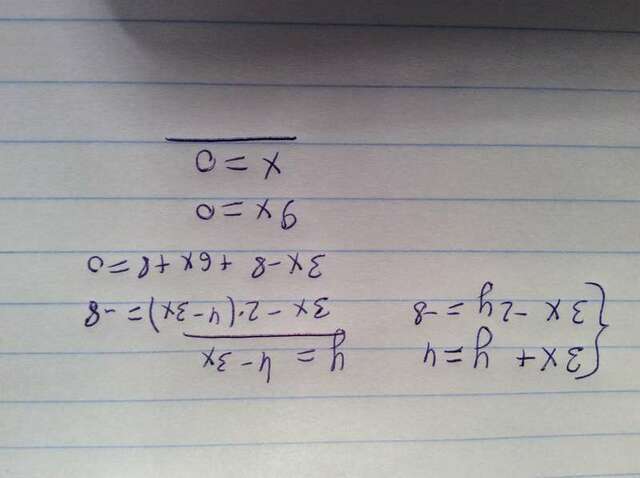 3x + y = 4
3x - 2y = -8
y = 4 - 3x
3x - 2·(4 - 3x) = -8
3x - 8 + 6x + 8 = 0
9x = 0
x = 0